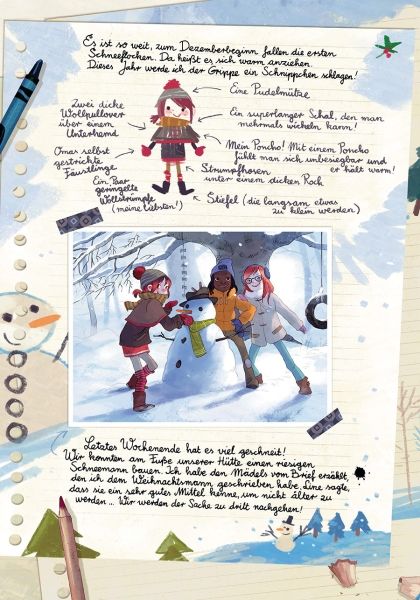 Es ist so weit, zum Dezemberbeginn fallen die ersten
Schneeflocken. Da heißt es sich warm anziehen.
Dieses Jahr werde ich der Grippe ein Schnippchen schlagen!
Eine Pudelmütze
Zwei dicke
Wollpullover
über einem
Unterhemd
Ein superlanger Schal, den man
mehrmals wickeln kann!
Mein Poncho! Mit einem Poncho
fühlt man sich unbesiegbar und
er hält warm!
Omas selbst
gestrickte
Fäustlinge
Strumpfhosen
unter einem dicken Rock
Ein Paar
geringelte
Wollstrümpfe
(meine liebsten!)
Stiefel (die langsam etwas
zu klein werden)
Letztes Wochenende hat es viel geschneit!
Wir konnten am Fuße unserer Hütte einen riesigen
Schneemann bauen. Ich habe den Mädels vom Brief erzählt,
den ich dem Weihnachtsmann geschrieben habe. Line sagte,
dass sie ein sehr gutes Mittel kenne, um nicht älter zu
werden... Wir werden der Sache zu dritt nachgehen!